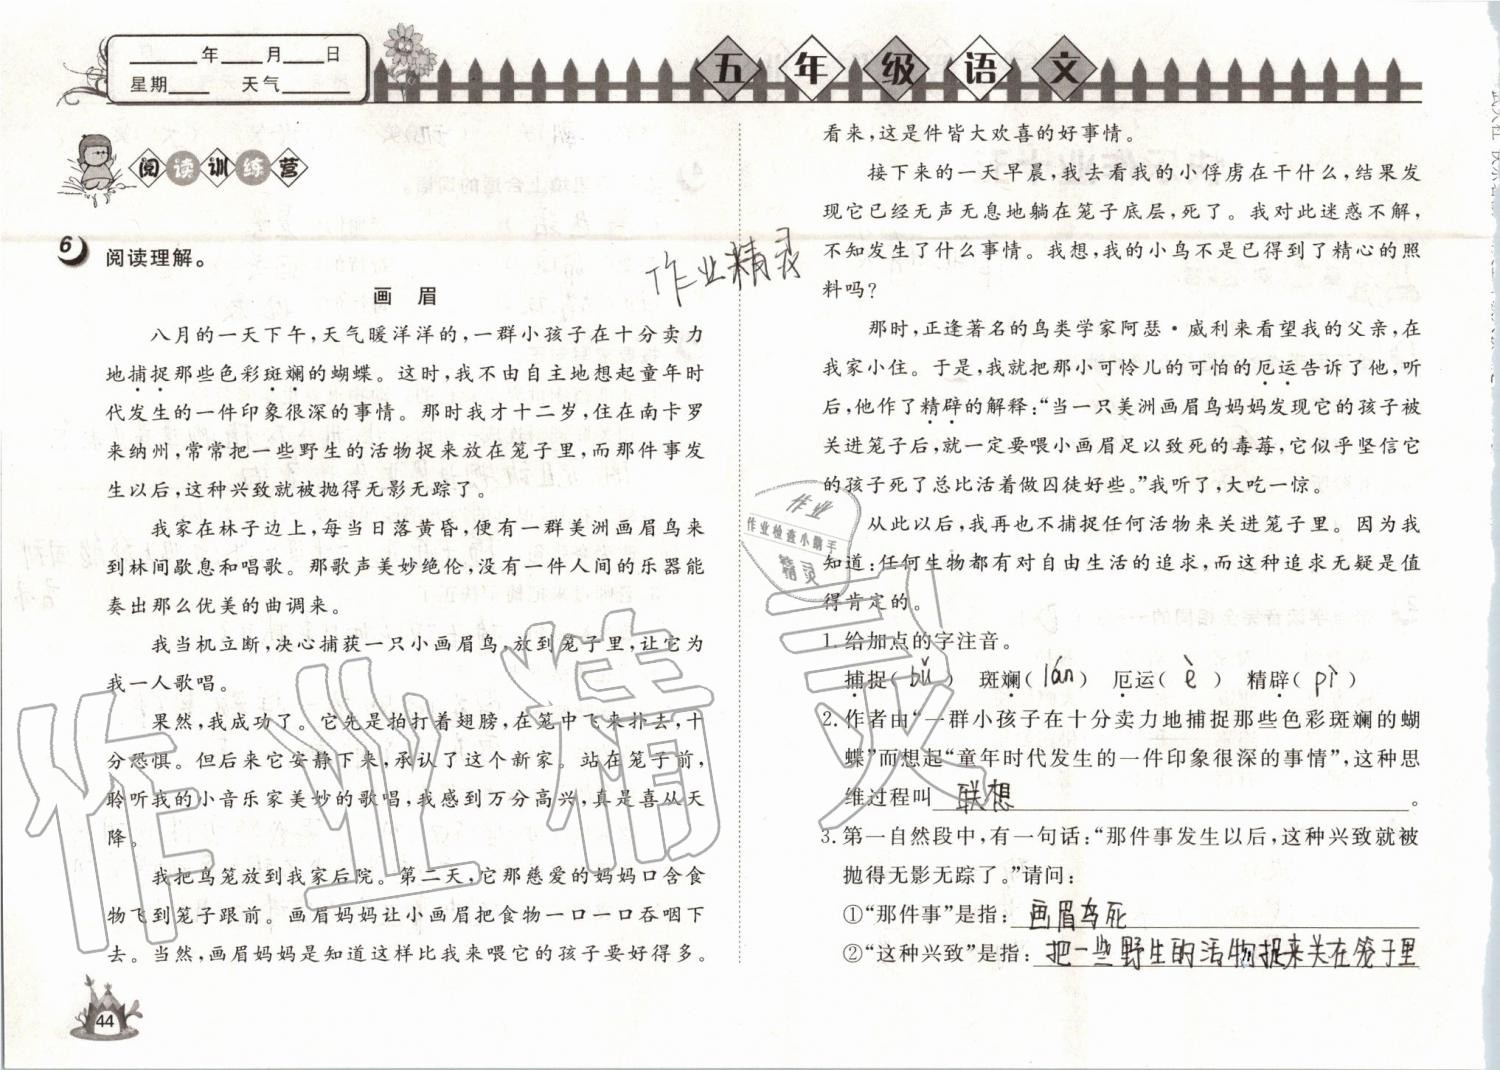 ____年____月____日
星期____ 天气____
五年级语文
阅读训练营
6 阅读理解。
画 眉
八月的一天下午,天气暖洋洋的,一群小孩子在十分卖力
地捕捉那些色彩斑斓的蝴蝶。这时,我不由自主地想起童年时
代发生的一件印象很深的事情。那时我才十二岁,住在南卡罗
来纳州,常常把一些野生的活物捉来放在笼子里,而那件事发
生以后,这种兴致就被抛得无影无踪了。
我家在林子边上,每当日落黄昏,便有一群美洲画眉鸟来
到林间歇息和唱歌。那歌声美妙绝伦,没有一件人间的乐器能
奏出那么优美的曲调来。
我当机立断,决心捕获一只小画眉鸟,放到笼子里,让它为
我一人歌唱。
果然,我成功了。它先是拍打着翅膀,在笼中飞来扑去,十
分恐惧。但后来它安静下来,承认了这个新家。站在笼子前,
聆听我的小音乐家美妙的歌唱,我感到万分高兴,真是喜从天
降。
我把鸟笼放到我家后院。第二天,它那慈爱的妈妈口含食
物飞到笼子跟前。画眉妈妈让小画眉把食物一口一口吞咽下
去。当然,画眉妈妈是知道这样比我来喂它的孩子要好得多。
44
作业精灵
看来,这是件皆大欢喜的好事情。
接下来的一天早晨,我去看我的小俘虏在干什么,结果发
现它已经无声无息地躺在笼子底层,死了。我对此迷惑不解,
不知发生了什么事情。我想,我的小鸟不是已得到了精心的照
料吗?
那时,正逢著名的鸟类学家阿瑟·威利来看望我的父亲,在
我家小住。于是,我就把那小可怜儿的可怕的厄运告诉了他,听
后,他作了精辟的解释:“当一只美洲画眉鸟妈妈发现它的孩子被
关进笼子后,就一定要喂小画眉足以致死的毒莓,它似乎坚信它
的孩子死了总比活着做囚徒好些。”我听了,大吃一惊。
从此以后,我再也不捕捉任何活物来关进笼子里。因为我
知道:任何生物都有对自由生活的追求,而这种追求无疑是值
得肯定的。
1. 给加点的字注音。
捕捉( bǔ ) 斑斓( lán ) 厄运( è ) 精辟( pì )
2. 作者由“一群小孩子在十分卖力地捕捉那些色彩斑斓的蝴
蝶”而想起“童年时代发生的一件印象很深的事情”,这种思
维过程叫 联想 。
3. 第一自然段中,有一句话:“那件事发生以后,这种兴致就被
抛得无影无踪了。”请问:
①“那件事”是指: 画眉鸟死
②“这种兴致”是指: 把一些野生的活物捉来关在笼子里
作业
作业检查小帮手
精灵
作业精灵